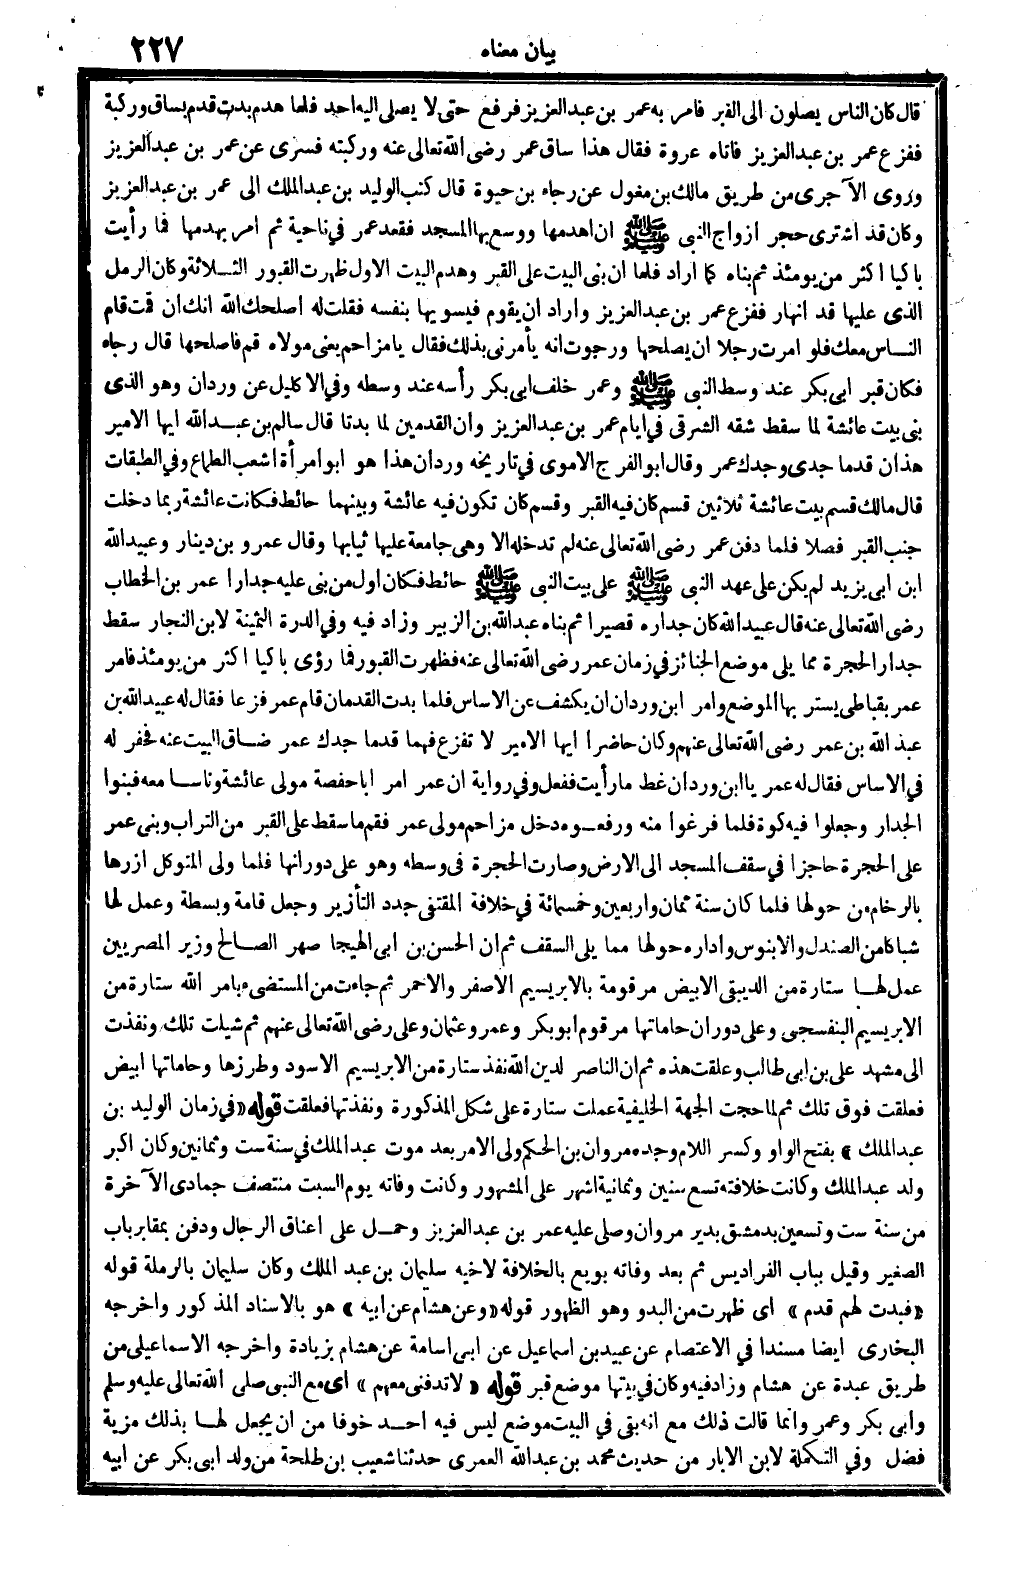 بيان معناه ٢٢٧
قال كان الناس يصلون الى القبر فامر به عمر بن عبد العزيز فرفع حتى لا يصلى اليه احد فلما هدم بدت قدم بساق وركبة
ففزع عمر بن عبد العزيز فاتاه عروة فقال هذا ساق عمر رضى الله تعالى عنه وركبته فسرى عن عمر بن عبد العزيز
وروى الآجرى من طريق مالك بن مغول عن رجاء بن حيوة قال كتب الوليد بن عبد الملك الى عمر بن عبد العزيز
وكان قد اشترى حجر ازواج النبى ﷺ ان اهدمها ووسع بها المسجد فقعد عمر في ناحية ثم امر بهدمها فما رأيت
باكيا اكثر من يومئذ ثم بناه كما اراد فلما ان بنى البيت على القبر وهدم البيت الاول ظهرت القبور الثلاثة وكان الرمل
الذى عليها قد انهار ففزع عمر بن عبد العزيز واراد ان يقوم فيسويها بنفسه فقلت له اصلحك الله انك ان قمت قام
الناس معك فلو امرت رجلا ان يصلحها ورجوت انه يأمرنى بذلك فقال يا مزاحم يعنى مولاه قم فاصلحها قال رجاء
فكان قبر ابى بكر عند وسط النبى ﷺ وعمر خلف ابى بكر رأسه عند وسطه وفي الاكليل عن وردان وهو الذى
بنى بيت عائشة لما سقط شقه الشرقى في ايام عمر بن عبد العزيز وان القدمين لما بدتا قال سالم بن عبد الله ايها الامير
هذان قدما جدى وجدك عمر وقال ابو الفرج الاموى في تاريخه وردان هذا هو ابو امرأة اشعب الطماع وفي الطبقات
قال مالك قسم بيت عائشة ثلاثين قسم كان فيه القبر وقسم كان تكون فيه عائشة وبينهما حائط فكانت عائشة ربما دخلت
جنب القبر فصلا فلما دفن عمر رضى الله تعالى عنه لم تدخله الا وهى جامعة عليها ثيابها وقال عمرو بن دينار وعبيد الله
ابن ابى يزيد لم يكن على عهد النبى ﷺ على بيت النبى ﷺ حائط فكان اول من بنى عليه جدارا عمر بن الخطاب
رضى الله تعالى عنه قال عبيد الله كان جداره قصيرا ثم بناه عبد الله بن الزبير وزاد فيه وفي الدرة الثمينة لابن النجار سقط
جدار الحجرة مما يلى موضع الجنائز في زمان عمر رضى الله تعالى عنه فظهرت القبور فما رؤى باكيا اكثر من يومئذ فامر
عمر بقباطى يستر بها الموضع وامر ابن وردان ان يكشف عن الاساس فلما بدت القدمان قام عمر فزعا فقال له عبيد الله بن
عبد الله بن عمر رضى الله تعالى عنهم وكان حاضرا ايها الامير لا تفزع فهما قدما جدك عمر ضاق البيت عنه فحفر له
في الاساس فقال له عمر يا ابن وردان غط ما رأيت ففعل وفي رواية ان عمر امر ابا حفصة مولى عائشة وناسا معه فبنوا
الجدار وجعلوا فيه كوة فلما فرغوا منه ورفعوه دخل مزاحم مولى عمر فقم ما سقط على القبر من التراب وبنى عمر
على الحجرة حاجزا في سقف المسجد الى الارض وصارت الحجرة فى وسطه وهو على دورانها فلما ولى المتوكل ازرها
بالرخام من حولها فلما كان سنة ثمان واربعين وخمسمائة في خلافة المقتفى جدد التأزير وجعل قامة وبسطة وعمل لها
شباكا من الصندل والابنوس واداره حولها مما يلى السقف ثم ان الحسن بن ابى الهيجا صهر الصالح وزير المصريين
عمل لها ستارة من الديبقى الابيض مرقومة بالابريسيم الاصفر والاحمر ثم جاءت من المستضىء بامر الله ستارة من
الابريسيم البنفسجى وعلى دوران حاماتها مرقوم ابو بكر وعمر وعثمان وعلى رضى الله تعالى عنهم ثم شيلت تلك ونفذت
الى مشهد على بن ابى طالب وعلقت هذه ثم ان الناصر لدين الله نفذ ستارة من الابريسيم الاسود وطرزها وحاماتها ابيض
فعلقت فوق تلك ثم لما حجت الجهة الخليفية عملت ستارة على شكل المذكورة ونفذتها فعلقت قوله «في زمان الوليد بن
عبد الملك» بفتح الواو وكسر اللام وجده مروان بن الحكم ولى الامر بعد موت عبد الملك في سنة ست وثمانين وكان اكبر
ولد عبد الملك وكانت خلافته تسع سنين وثمانية اشهر على المشهور وكانت وفاته يوم السبت منتصف جمادى الآخرة
من سنة ست وتسعين بدمشق بدير مروان وصلى عليه عمر بن عبد العزيز وحمل على اعناق الرجال ودفن بمقابر باب
الصغير وقيل بباب الفراديس ثم بعد وفاته بويع بالخلافة لاخيه سليمان بن عبد الملك وكان سليمان بالرملة قوله
«فبدت لهم قدم» اى ظهرت من البدو وهو الظهور قوله «وعن هشام عن ابيه» هو بالاسناد المذكور واخرجه
البخارى ايضا مسندا في الاعتصام عن عبيد بن اسماعيل عن ابى اسامة عن هشام بزيادة واخرجه الاسماعيلى من
طريق عبدة عن هشام وزاد فيه وكان في بيتها موضع قبر قوله «لا تدفنى معهم» اى مع النبى صلى الله تعالى عليه وسلم
وابى بكر وعمر وانما قالت ذلك مع انه بقى في البيت موضع ليس فيه احد خوفا من ان يجعل لها بذلك مزية
فضل وفي التكملة لابن الابار من حديث محمد بن عبد الله العمرى حدثنا شعيب بن طلحة من ولد ابى بكر عن ابيه